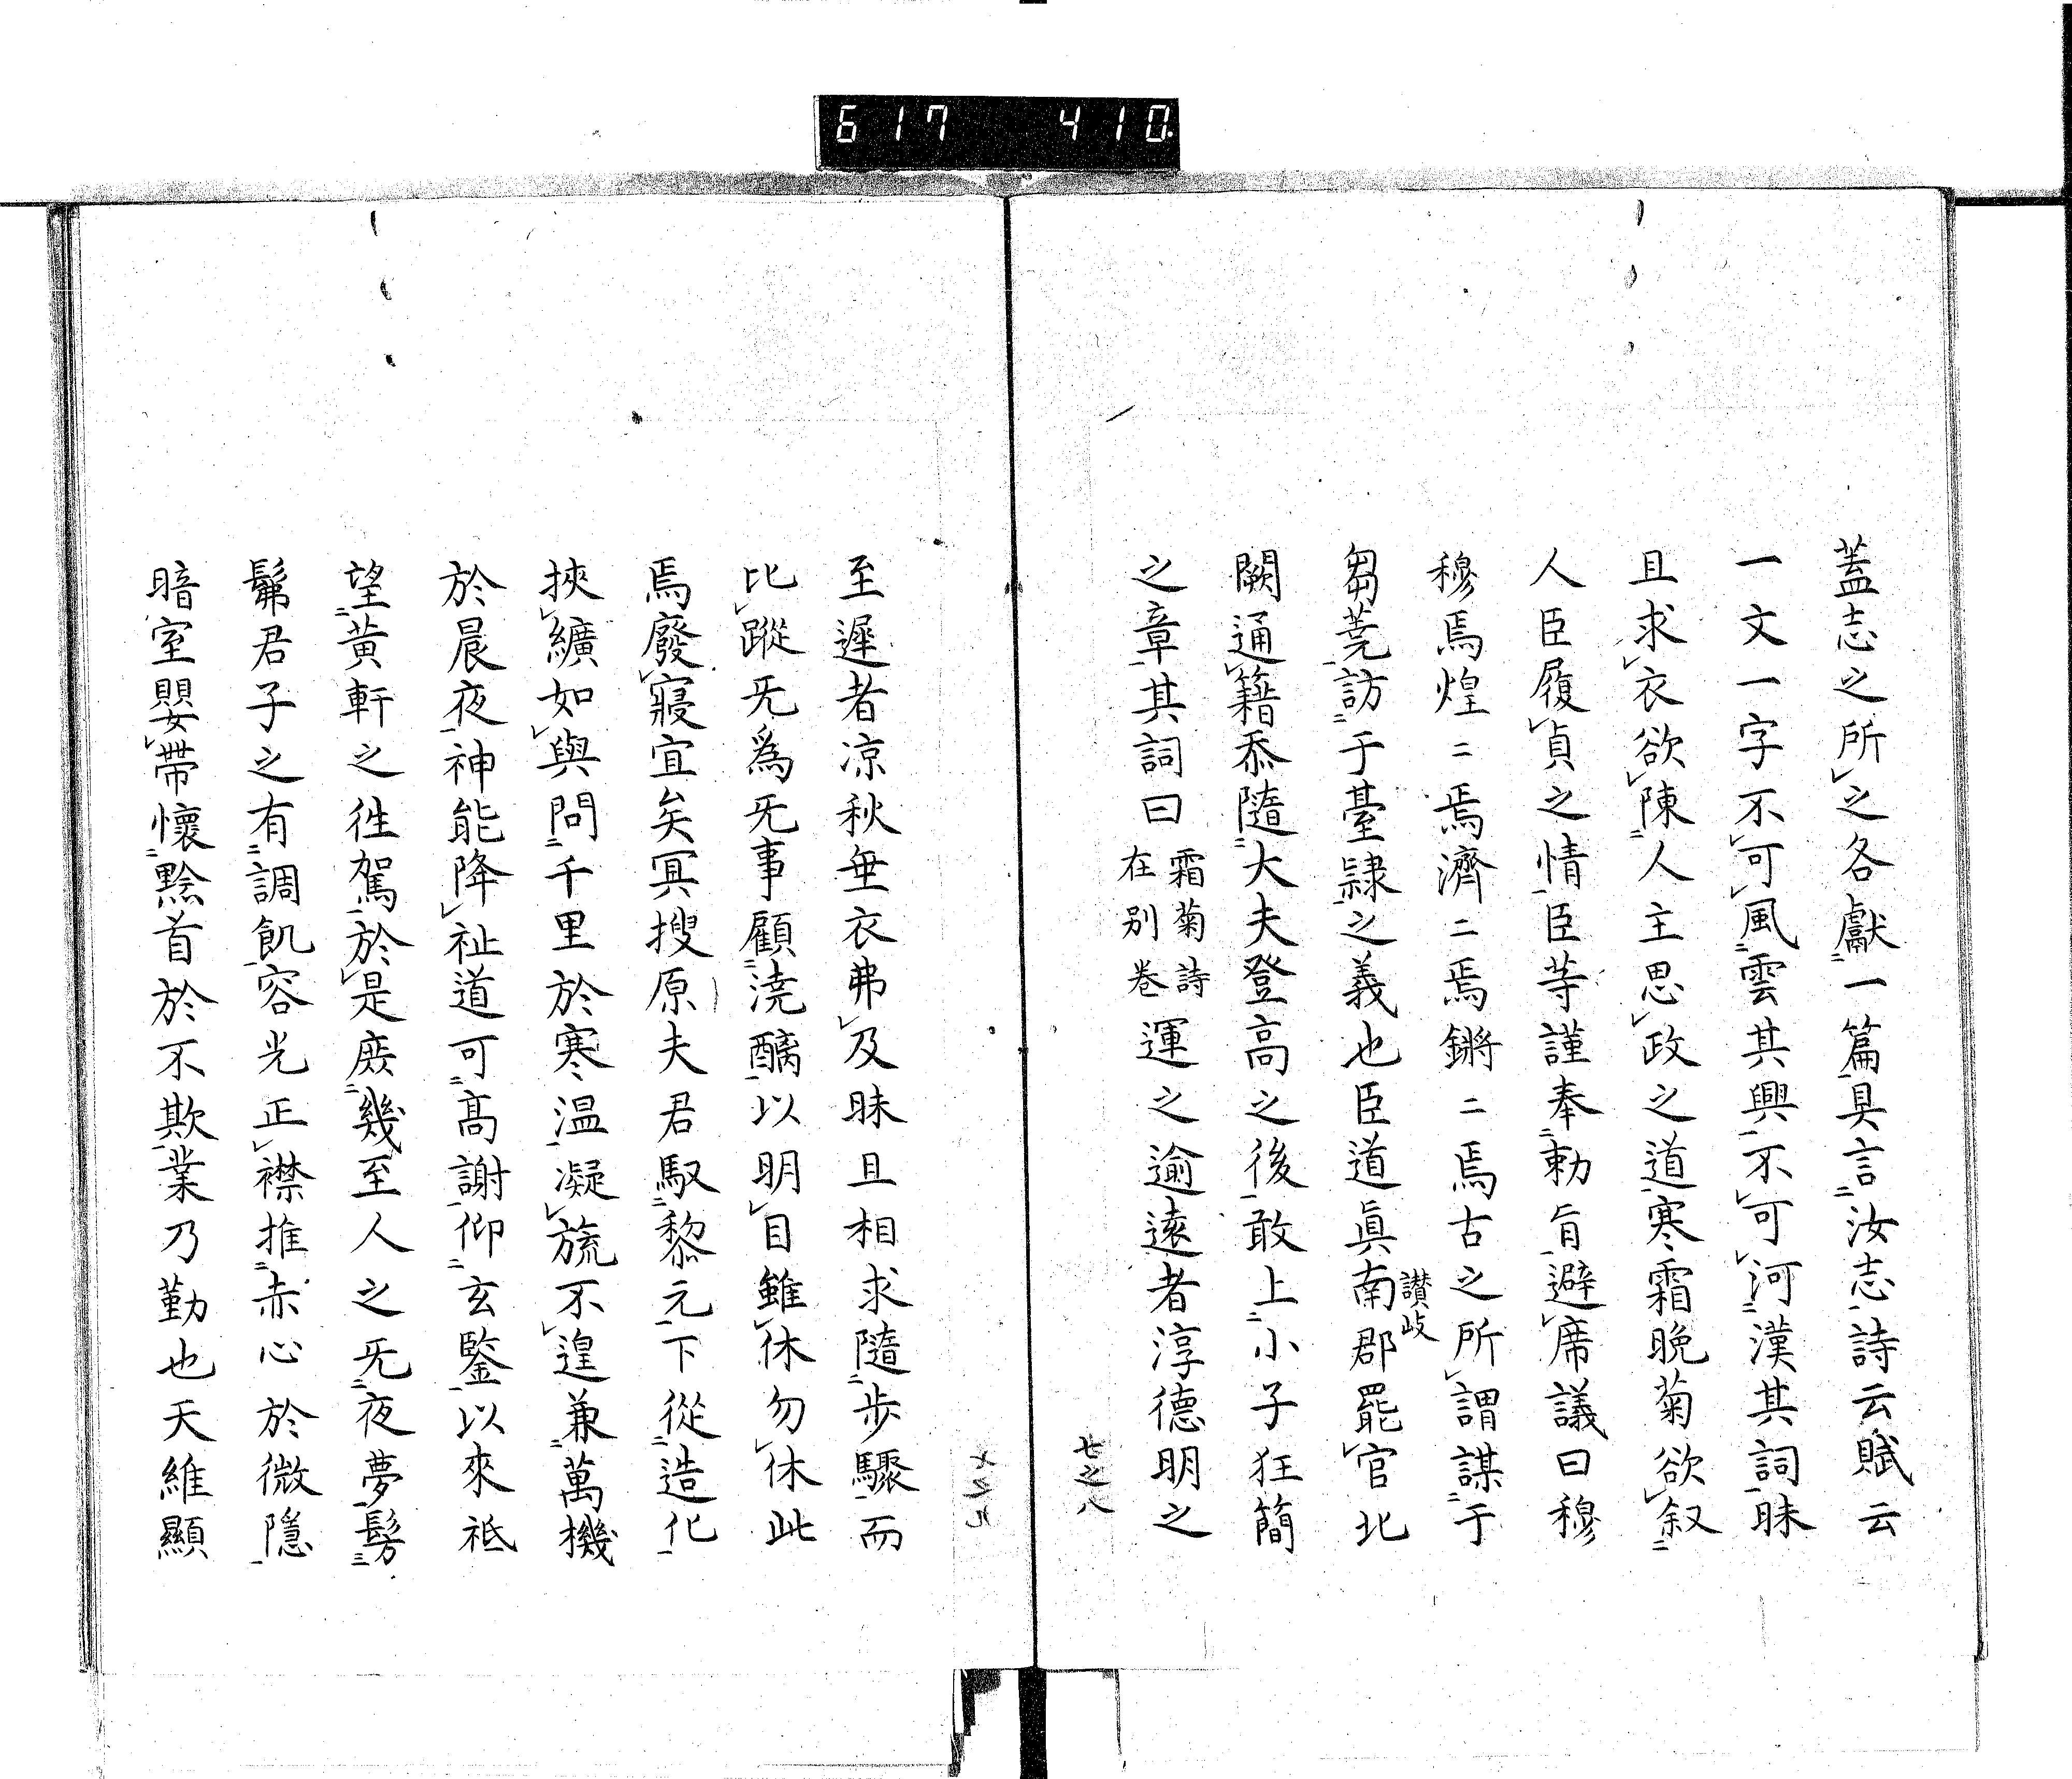 617 410
蓋志之所之各獻一篇具言汝志詩云賦云
一文一字不可風雲其興不可河漢其詞昧
且求衣欲陳人主思政之道寒霜晩菊欲叙
人臣履貞之情臣等謹奉勅旨避席議曰穆
穆焉煌〻焉濟〻焉鏘〻焉古之所謂謀于
芻蕘訪于臺隷之義也臣道眞南郡罷官北
讃岐
闕通籍忝隨大夫登高之後敢上小子狂簡
之章其詞曰霜菊詩在別卷運之逾遠者淳德明之
七之八
至遲者凉秋無衣弗及昧旦相求隨步驟而
比蹤旡爲旡事顧澆醨以明目雖休勿休此
焉廢寢宜矣冥搜原夫君馭黎元下從造化
挾纊如與問千里於寒温凝旒不遑兼萬機
於晨夜神能降祉道可高謝仰玄鑒以來祗
望黄軒之徃駕於是庶幾至人之旡夜夢髣
髴君子之有調飢容光正襟推赤心於微隱
暗室嬰帶懷黔首於不欺業乃勤也天維顯